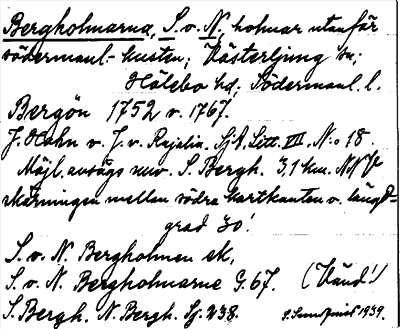 Bergholmarna, S. o. N., holmar utanför
södermanl. kusten; Västerljung sn;
Hölebo hd; Södermanl. l.
Bergön 1752 o. 1767.
J. Hahn o. J. v. Rajalin. SjA. Litt. III, N:o 18.
Möjl. avsågs nuv. S. Bergh. 3,1 km. NNV
skärningen mellan södra kartkanten o. längd-
grad 30'.
S. o. N. Bergholmen ek.
S. o. N. Bergholmarne G. 67. (Vänd!)
S. Bergh. N. Bergh. Sj. 238.
1939.